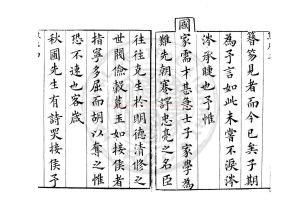 簪笏見者而今已矣子期
為予言如此未嘗不淚涔
涔承睫也予惟
國家需才甚急士子家學為
難先朝賽謬忠亮之名臣
往往克生於明德清修之
世閥儉毅荒玉如接侯者
指寧多屈而胡以奪之惟
恐不速也客歲
秋圃先生有詩哭接侯予